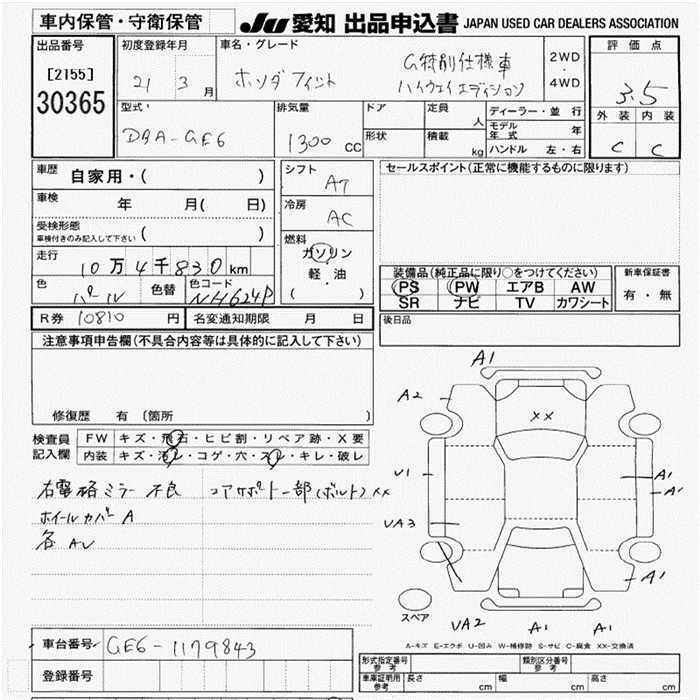 車内保管・守衛保管
JU 愛知 出品申込書 JAPAN USED CAR DEALERS ASSOCIATION
出品番号
[2155]
30365
初度登録年月
21 3 月
車名・グレード
ホンダ フィット
G特別仕様車
ハイウェイエディション
2WD
・
4WD
評価点
3.5
外装 内装
C C
型式
DBA-GE6
排気量
1300 cc
ドア
形状
定員
人
積載
kg
ディーラー・並行
モデル年式 年
ハンドル 左・右
車歴 自家用・( )
車検 年 月( 日)
受検形態
車検付きのみ記入して下さい ( )
走行 10万4千830km
色 パール 色替 色コード NH624P
シフト AT
冷房 AC
燃料
ガソリン
軽・油
( )
セールスポイント(正常に機能するものに限ります)
装備品(純正品に限り○をつけてください)
PS PW エアB AW
SR ナビ TV カワシート
新車保証書
有・無
R券 10810 円 名変通知期限 月 日
後日品
注意事項申告欄(不具合内容等は具体的に記入して下さい)
修復歴 有 〔箇所 〕
検査員
記入欄
FW キズ・飛石・ヒビ割・リペア跡・X要
内装 キズ・汚レ・コゲ・穴・スレ・キレ・破レ
右電格ミラー不良 コアサポート一部(ボルト)××
ホイールカバー A
各 AU
A1
A2
××
U1
A1
A1
UA3
A1
スペア
UA2
A1
A1
A-キズ E-エクボ U-凹み W-補修跡 S-サビ C-腐食 XX-交換済
車台番号 GE6-1179843
登録番号
形式指定番号 参考
類別区分番号 参考
車庫証明用 参考 長さ cm 幅 cm 高さ cm